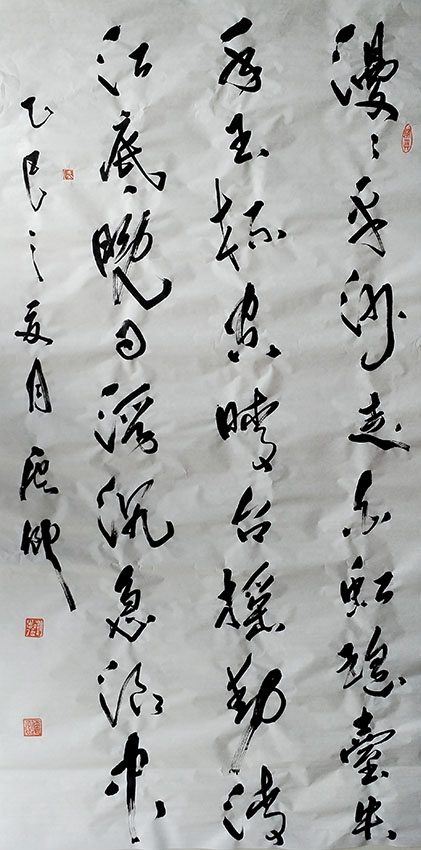 漫々平沙走白虹瑶臺失
手玉杯空晴台摇動清
江底晚日浮沉急浪中
乙巳之夏月